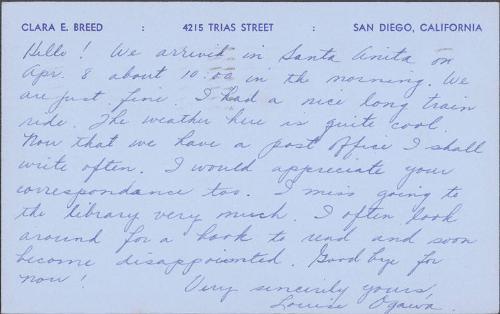 CLARA E. BREED : 4215 TRIAS STREET : SAN DIEGO, CALIFORNIA
Hello! We arrived in Santa Anita on
Apr. 8 about 10:00 in the morning. We
are just fine. I had a nice long train
ride. The weather here is quite cool.
Now that we have a post office I shall
write often. I would appreciate your
correspondance too. I miss going to
the library very much. I often look
around for a book to read and soon
become disappointed. Good bye for
now!
Very sincirly yours,
Louise Ogawa